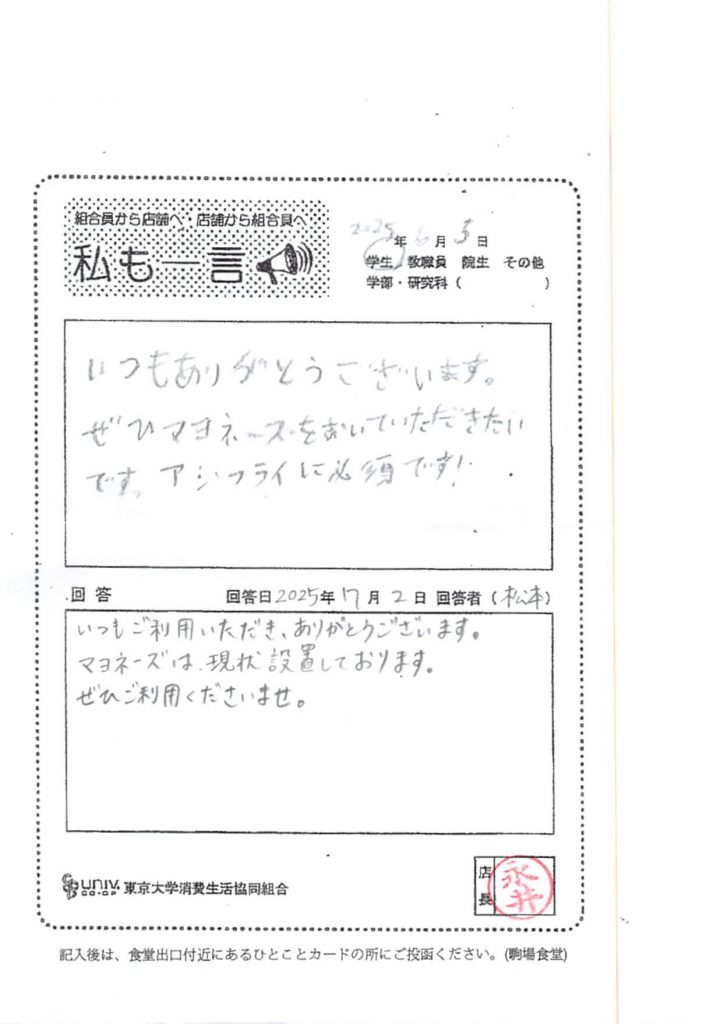 組合員から店舗へ・店舗から組合員へ
私も一言
2025年 6月 5日
学生 教職員 院生 その他
学部・研究科 ( )
いつもありがとうございます。
ぜひマヨネーズをおいていただきたい
です。アジフライに必須です!
回答 回答日2025年 7月 2日 回答者 (松本)
いつもご利用いただき、ありがとうございます。
マヨネーズは、現状設置しております。
ぜひご利用くださいませ。
univ. CO-OP 東京大学消費生活協同組合
店長 永井
記入後は、食堂出口付近にあるひとことカードの所にご投函ください。(駒場食堂)